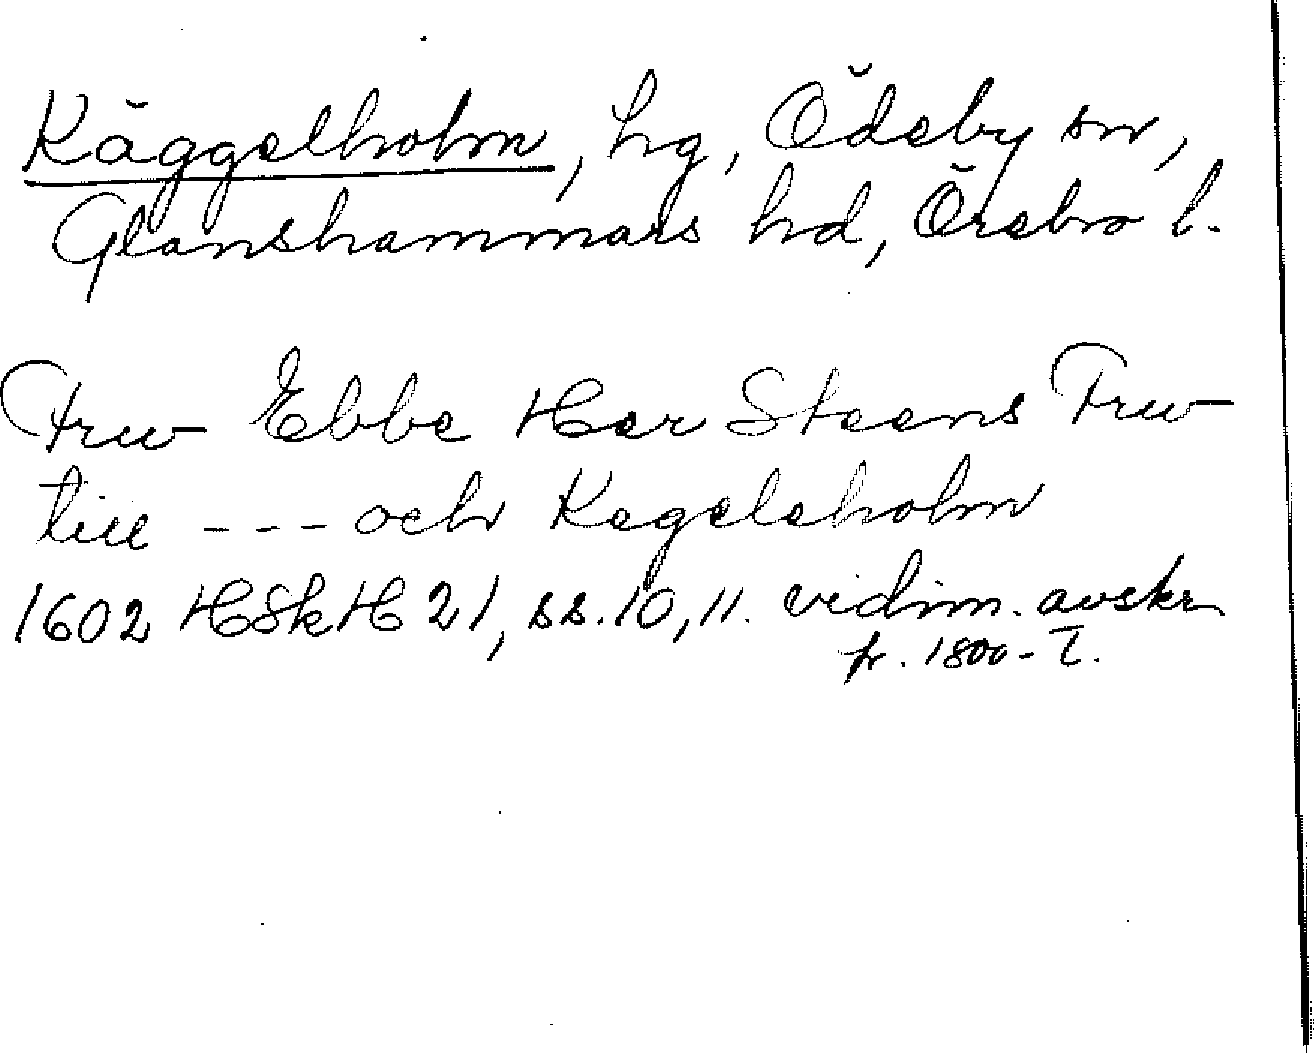 Käggelholm, hg, Ödeby sn,
Glanshammars hd, Örebro l.
Frw Ebbe Her Steens Frw
till --- och Kegeleholm
1602 HSkH 21, ss. 10, 11. vidim. avskr
fr. 1800-t.